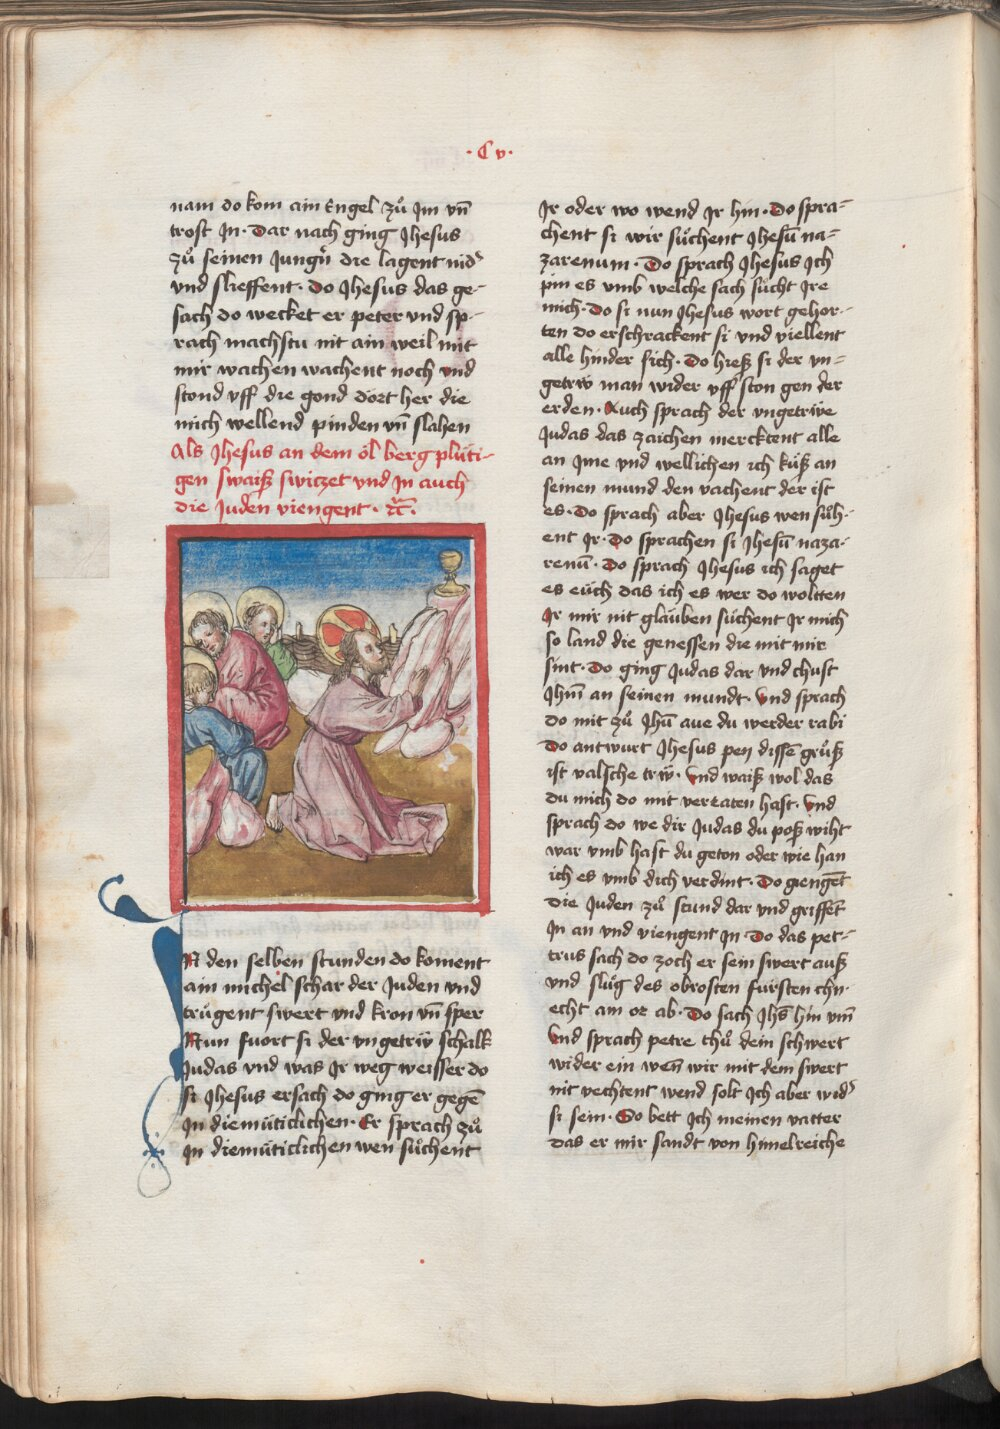 ·C v·
nam do kom ain Engel zů Jm vn̄
trost Jn· Dar nach ging Jhesus
zů seinen Jungn̄ die lagent nid
vnd slieffent· do Jhesus das ge-
sach do wecket er peter vnd sp-
rach machstu nit ain weil mit
mir wachen wachent noch vnd
stond vff die gond dort her die
mich wellend pinden vn̄ slahen
Als Jhesus an dem öl berg plüti-
gen swaiß switzet vnd Jn auch
die Juden viengent· ꝛc̄·
N den selben stunden do koment
ain michel schar der Juden vnd
trůgent swert vnd kron vn̄ sper
Nun fuort si der vngetrẅ schalk
Judas vnd was Jr weg weisser do
si Jhesus ersach do ging er gegē
Jn diemüticlichen· Er sprach zů
Jn diemüticlichen wen sůchent
Jr oder wo wend Jr hin· Do spra-
chent si wir sůchent Jhesū na-
zarenum· Do sprach Jhesus Jch
pin es vmb welche sach sůcht Jre
mich· Do si nun Jhesus wort gehor-
ten do erschrackent si vnd viellent
alle hinder sich· Do hieß si der vn-
getrẅ man wider vff ston gen der
erden· Auch sprach der vngetrẅe
Judas das zaichen mercktent alle
an Jme vnd wellichen ich küß an
seinen mund den vachent der ist
es· Do sprach aber Jhesus wen sůh-
ent Jr· Do sprachen si Jhesū naza-
renū· Do sprach Jhesus ich saget
es eüch das ich es wer do woltten
Jr mir nit glauben sůchent Jr mich
so land die genessen die mit mir
sint· Do ging Judas dar vnd chust
Jhm̄ an seinen mundt· Vnd sprach
do mit zů Jhū aue du werder rabi
Do antwurt Jhesus pey dissē grůß
ist valsche trẅ· Vnd waiß wol das
du mich do mit verraten hast· Vnd
sprach do we dir Judas du poß wiht
war vmb hast du geton oder wie han
ich es vmb dich verdint· Do giengēt
die Juden zů stund dar vnd griffēt
Jn an vnd viengent Jn· Do das pet-
trus sach do zoch er sein swert auß
vnd slůg des obrosten fürsten chn-
echt ain or ab· Do sach Jhs̄ hin vm̄
Vnd sprach petre thů dein schwert
wider ein wen̄ wir mit dem swert
nit vechtent wend solt Jch aber wid
si sein· So bett Jch meinen vatter
das er mir sandt von himelreiche